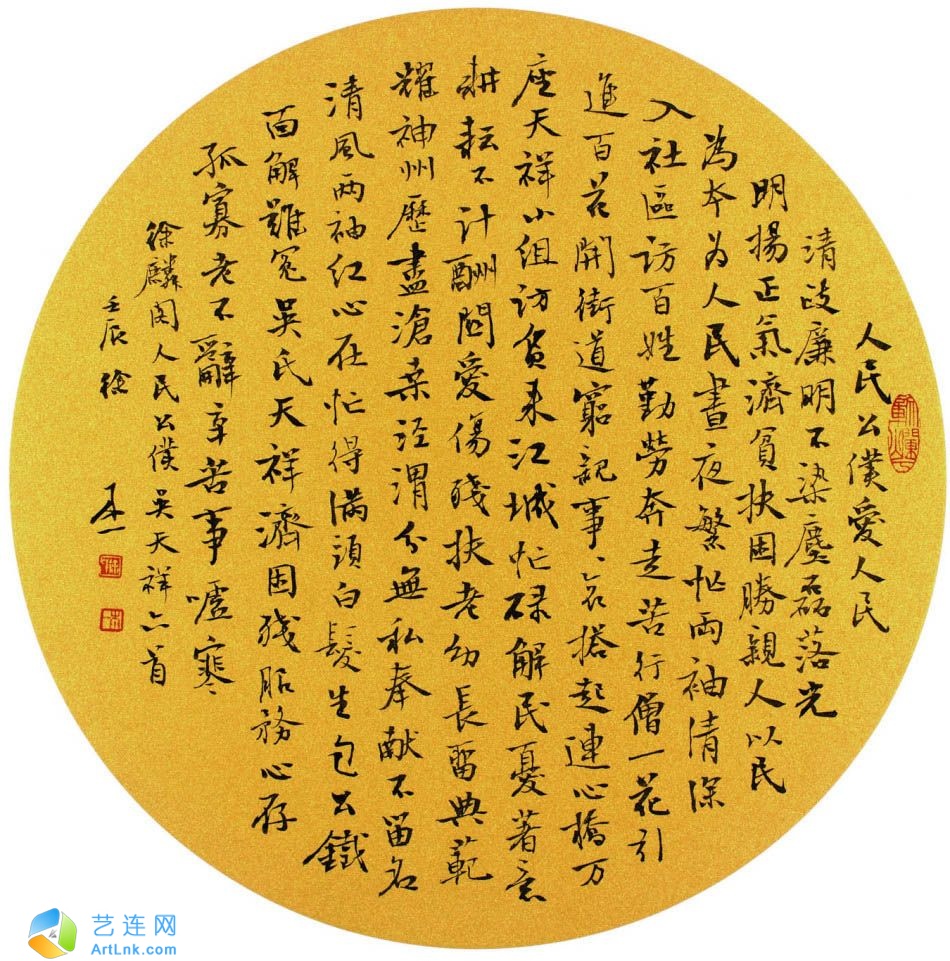 人民公僕愛人民
清政廉明不染塵磊落光
明揚正氣濟貧扶困勝親人以民
為本为人民晝夜繁忙両袖清深
入社區访百姓勤勞奔走苦行僧一花引
進百花開街道窮親事々哀搭起連心橋万
座天祥小组访贫来江城忙碌解民憂著意
耕耘不计酬問愛傷残扶老幼長留典範
耀神州歷盡滄桑泾渭分無私奉献不留名
清風两袖红心在忙得满頭白髮生包公鐵
面解難冤吴氏天祥濟困残服務心存
孤寡老不辭辛苦事嘘寒
徐麟閣人民公僕吴天祥六首
壬辰徐
艺连网
ArtLnk.com